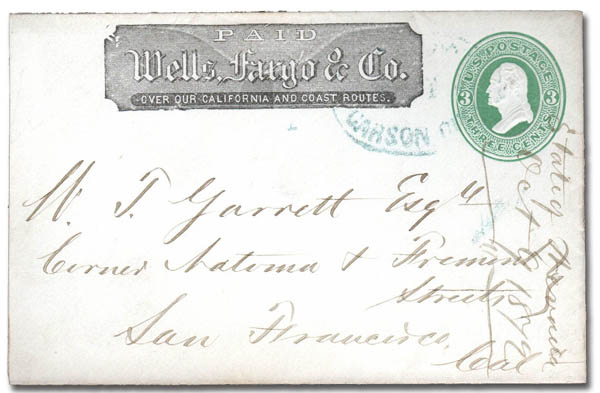 PAID
Wells, Fargo & Co.
OVER OUR CALIFORNIA AND COAST ROUTES.
U.S. POSTAGE
3 3
THREE CENTS
CARSON
W. T. Garrett Esqr
Corner Natoma & Fremont
Streets
San Francisco,
Cal
State of Nevada
Oct 4 1872